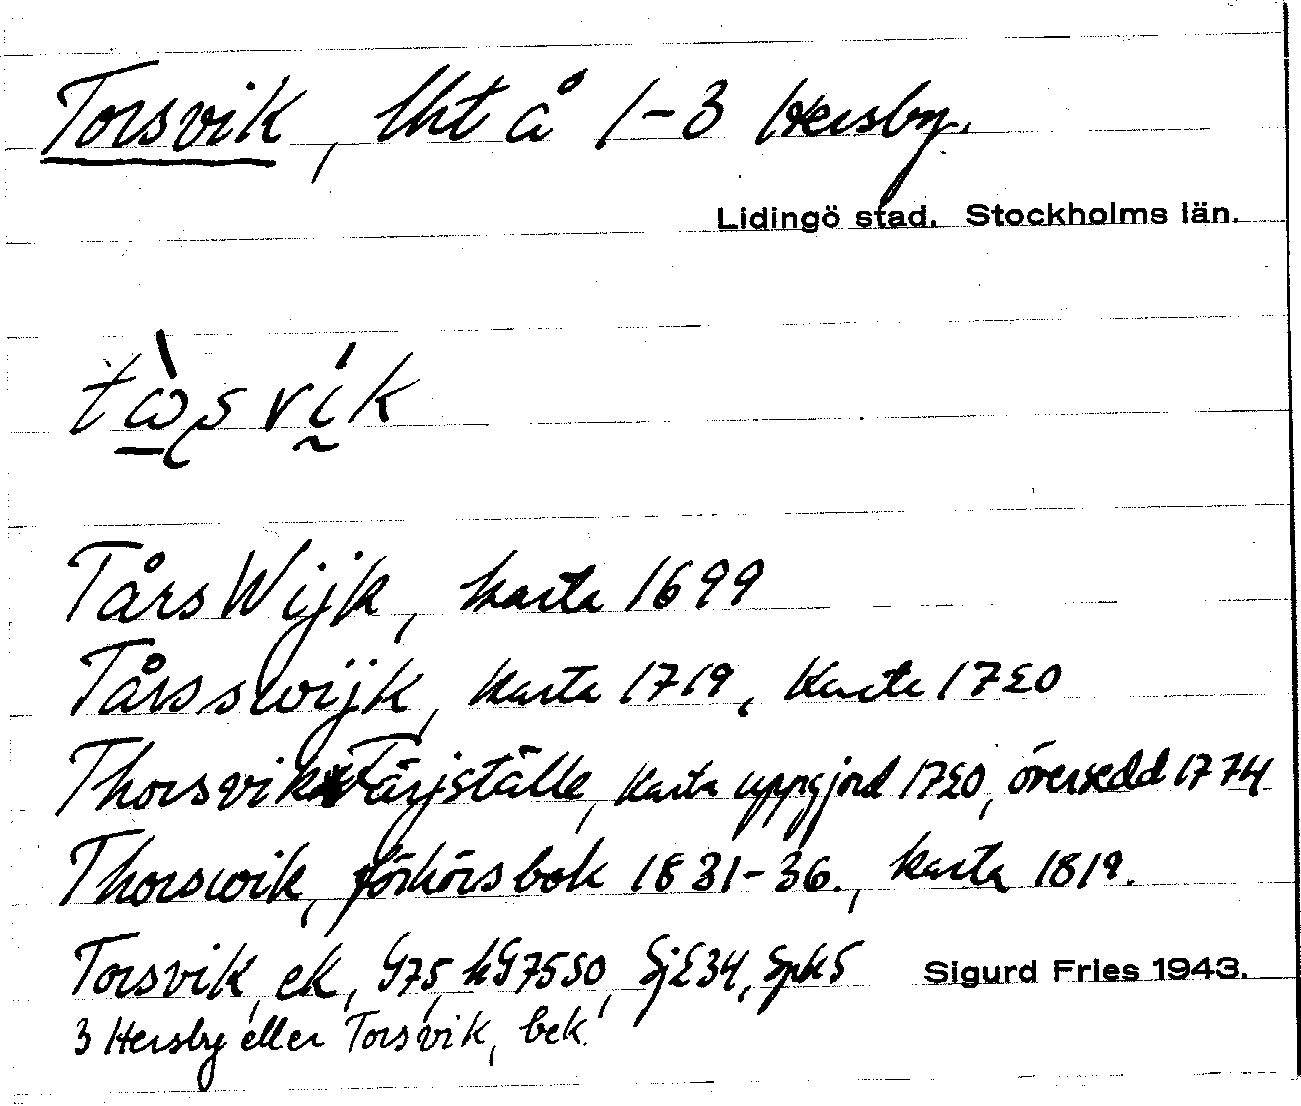 Torsvik, lht å 1-3 Hersby.
Lidingö stad. Stockholms län.
Tårs Wijk, karta 1699
Tårsswijk, karta 1719, karta 1720
Thorsvik Färjställe, karta uppgjord 1720, översedd 1774
Thorswik, förhörsbok 1831-36., karta 1819.
Torsvik, ek, G75, hG75SO, SjE34, Spk5
Sigurd Fries 1943.
3 Hersby eller Torsvik, bek.